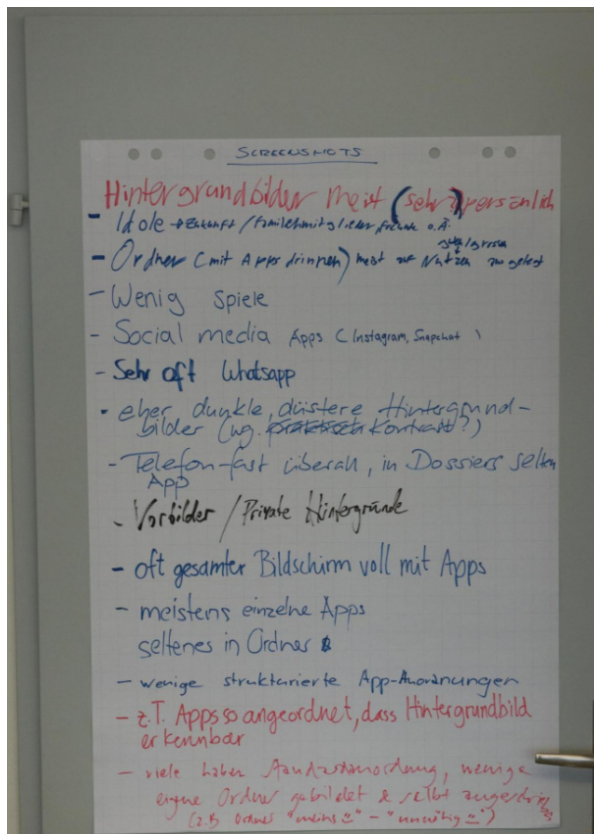 SCREENSHOTS
Hintergrundbilder meist (sehr) persönlich
- Idole → Zukunft / Familienmitglieder freunde o.Ä.
- Ordner (mit Apps drinnen) meist auf Nutzen
- Wenig Spiele
- Social media Apps (Instagram, Snapchat )
- Sehr oft Whatsapp
- eher dunkle, düstere Hintergrund-
bilder (wg. Kontrast?)
- Telefon-fast überall, in Dossiers selten
App
- Vorbilder / Private Hintergründe
- oft gesamter Bildschirm voll mit Apps
- meistens einzelne Apps
seltenes in Ordner
- wenige strukturierte App-Anordnungen
- z.T. Apps so angeordnet, dass Hintergrundbild
erkennbar
- viele haben Standardanordnung, wenige
eigne Ordner gebildet & selbst
(z.B Ordner "meins" - "unnötig")